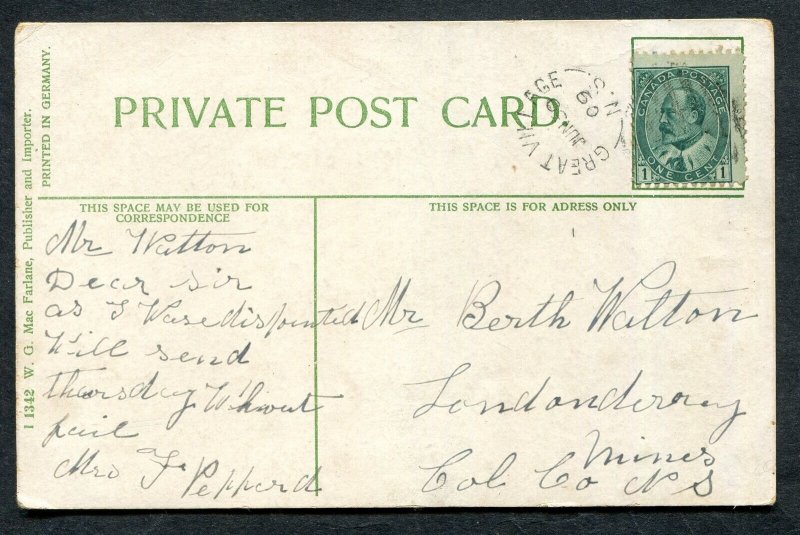 PRIVATE POST CARD
GREAT VILLAGE
N.S.
JUN
09
CANADA POSTAGE
1 ONE CENT 1
THIS SPACE MAY BE USED FOR
CORRESPONDENCE
THIS SPACE IS FOR ADRESS ONLY
I 1342 W. G. Mac Farlane, Publisher and Importer.
PRINTED IN GERMANY.
Mr Watton
Dear sir
as I Wase dispointed
Will send
thursday Without
fail
Mrs F Pepperd
Mr Berth Watton
Londonderry
Mines
Col. Co N S